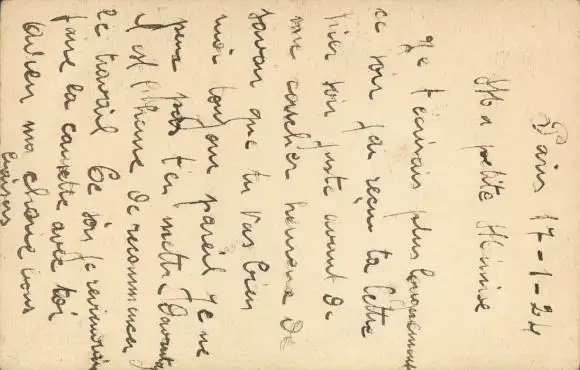 Paris 17-1-24
Ma petite Mimise
Je t'écrirais plus longuement
ce soir j'ai reçu ta lettre
hier soir juste avant de
me coucher heureuse de
savoir que tu vas bien
moi toujours pareil je ne
peux pas t'en mettre davantage
il est l'heure de recommencer
le travail Ce soir je reviendrai
faire la causette avec toi
ma chérie
baisers